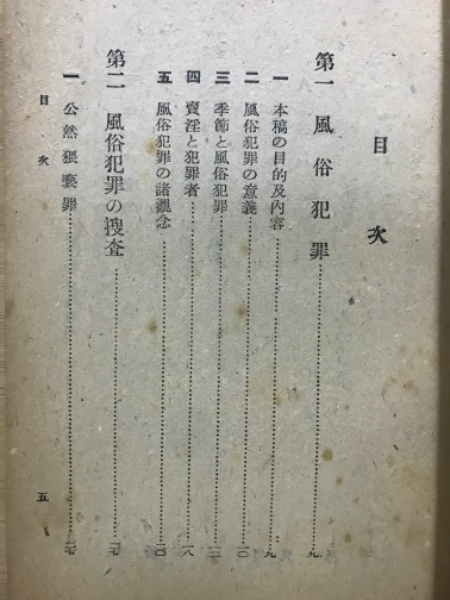 目次
第一 風俗犯罪……九
一 本稿の目的及內容……九
二 風俗犯罪の意義……一〇
三 季節と風俗犯罪……一二
四 賣淫と犯罪者……一八
五 風俗犯罪の諸觀念……二〇
第二 風俗犯罪の搜査……二七
一 公然猥褻罪……二七
目次
五